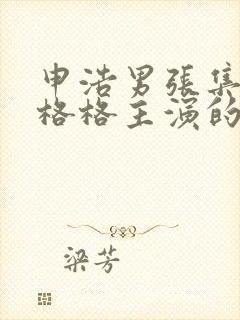 申浩男張集
格格主演的
梁芳